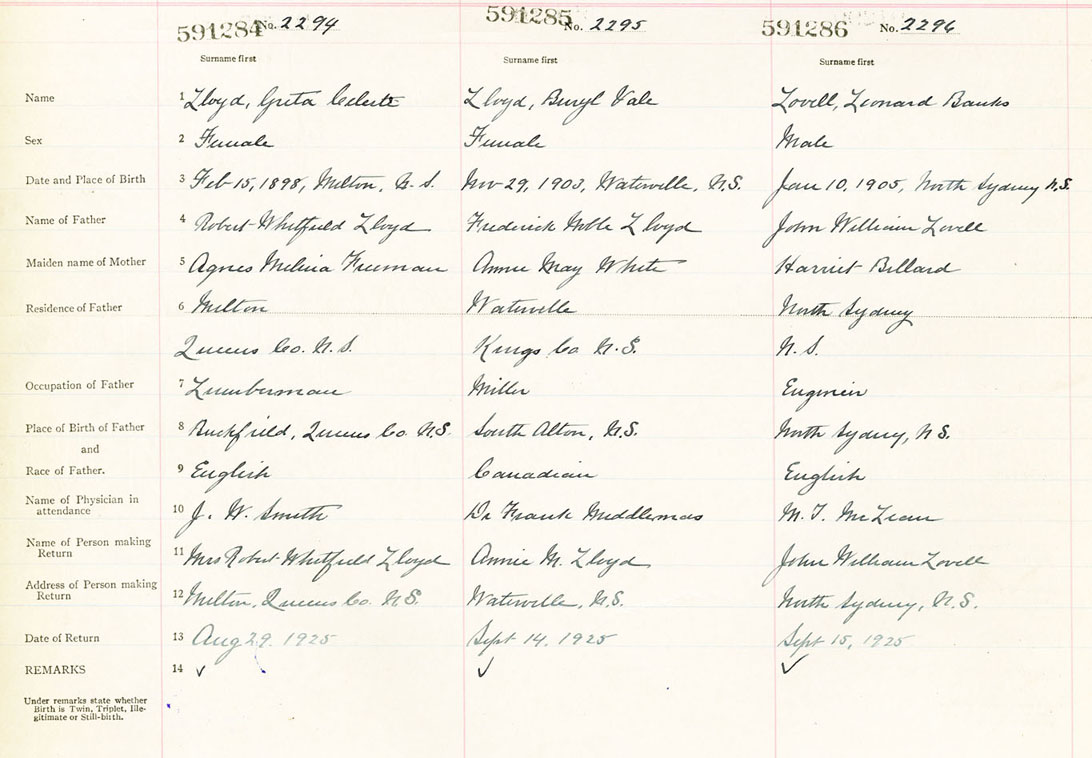 591284 No. 2294 591285 No. 2295 591286 No. 2296
Surname first Surname first Surname first
Name 1 Lloyd, Greta Celeste Lloyd, Beryl Vale Lovell, Leonard Banks
Sex 2 Female Female Male
Date and Place of Birth 3 Feb 15, 1898, Milton, N. S. Nov 29, 1903, Waterville, N.S. Jan 10, 1905, North Sydney N.S.
Name of Father 4 Robert Whitfield Lloyd Frederick Noble Lloyd John William Lovell
Maiden name of Mother 5 Agnes Melina Freeman Annie May White Harriet Billard
Residence of Father 6 Milton Waterville North Sydney
Queens Co. N. S. Kings Co N. S. N. S.
Occupation of Father 7 Lumberman Miller Engineer
Place of Birth of Father 8 Buckfield, Queens Co. N.S. South Alton, N.S. North Sydney, N S.
and
Race of Father. 9 English Canadian English
Name of Physician in
attendance 10 J. W. Smith Dr Frank Middlemas M. T. McLean
Name of Person making
Return 11 Mrs Robert Whitfield Lloyd Annie M. Lloyd John William Lovell
Address of Person making
Return 12 Milton, Queens Co. N.S. Waterville, N.S. North Sydney, N.S.
Date of Return 13 Aug 29. 1925 Sept 14. 1925 Sept 15, 1925
REMARKS 14 ✓ ✓ ✓
Under remarks state whether
Birth is Twin, Triplet, Ille-
gitimate or Still-birth.